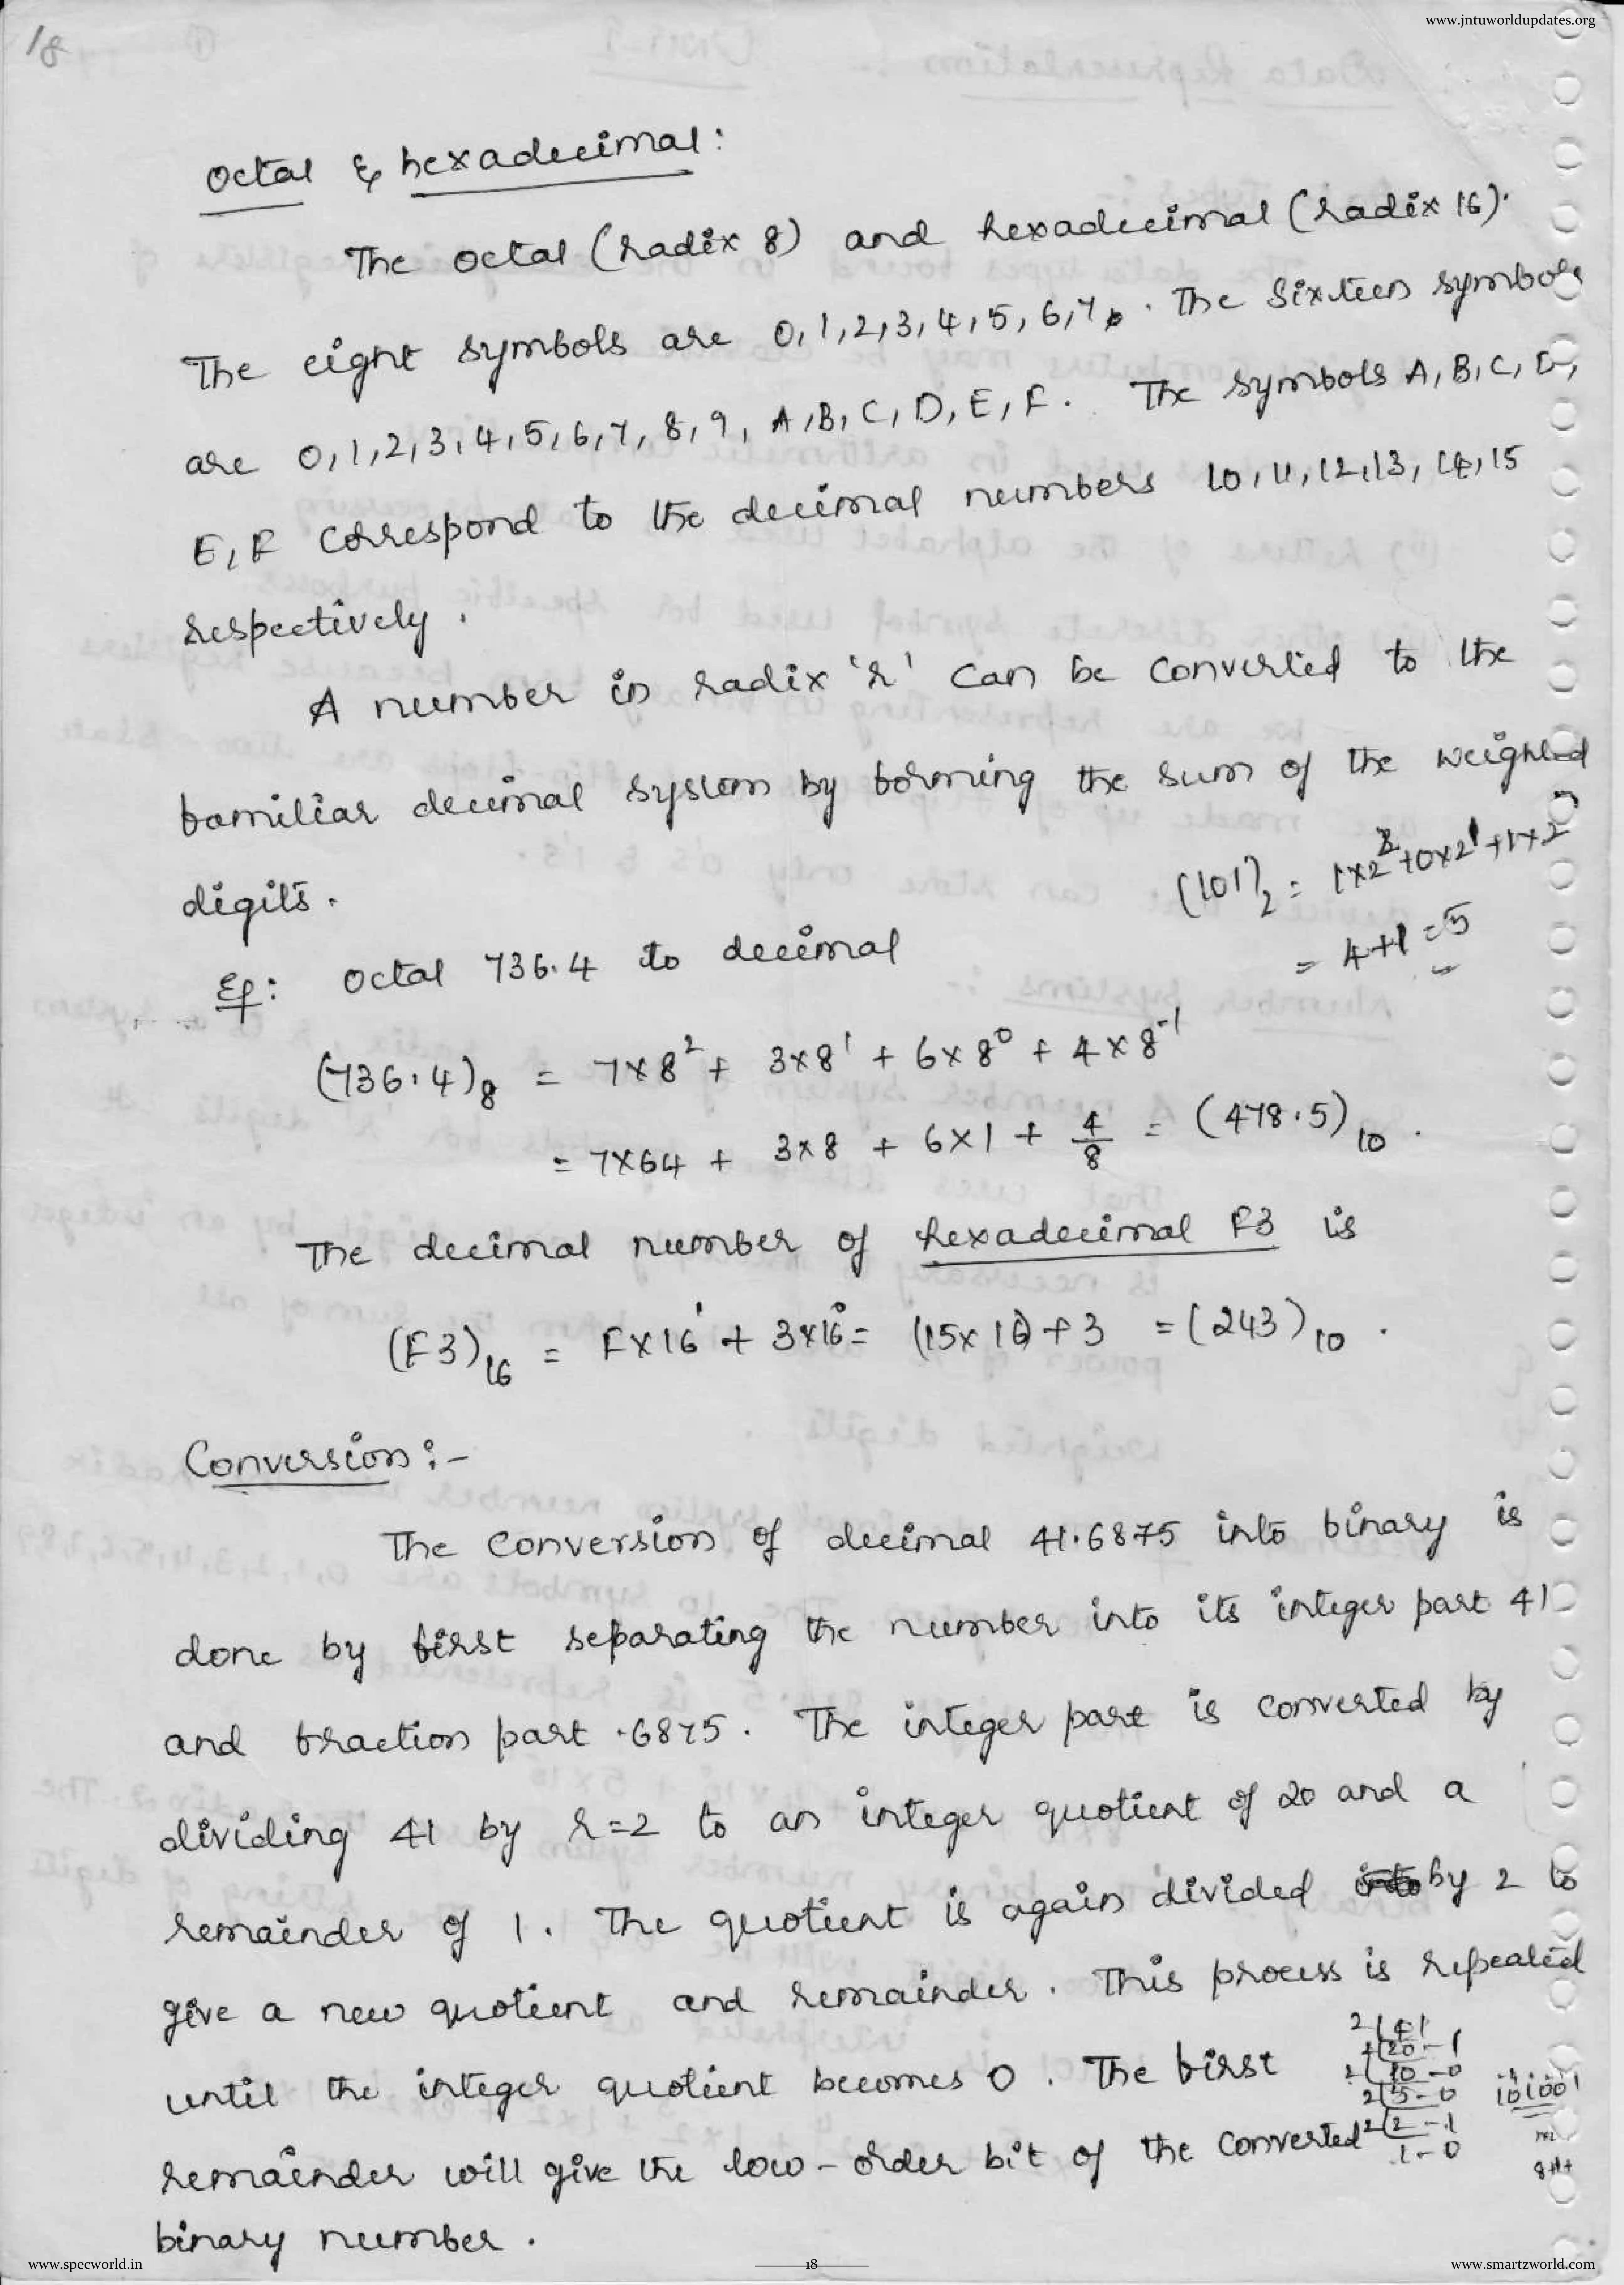 www.jntuworldupdates.org
18
Octal & hexadecimal:
The octal (radix 8) and hexadecimal (radix 16).
The eight symbols are 0,1,2,3,4,5,6,7. The Sixteen symbols
are 0,1,2,3,4,5,6,7,8,9, A,B,C,D,E,F. The symbols A,B,C,D,
E,F correspond to the decimal numbers 10,11,12,13,14,15
respectively.
A number in radix 'r' can be converted to the
familiar decimal system by forming the sum of the weighted
digits.
(101)₂ = 1×2²+0×2¹+1×2⁰
= 4+1=5
Eg: Octal 736.4 to decimal
(736.4)₈ = 7×8² + 3×8¹ + 6×8⁰ + 4×8⁻¹
= 7×64 + 3×8 + 6×1 + 4/8 = (478.5)₁₀.
The decimal number of hexadecimal F3 is
(F3)₁₆ = F×16¹ + 3×16⁰ = (15×16)+3 = (243)₁₀.
Conversion:-
The conversion of decimal 41.6875 into binary is
done by first separating the number into its integer part 41
and fraction part .6875. The integer part is converted by
dividing 41 by r=2 to an integer quotient of 20 and a
remainder of 1. The quotient is again divided by 2 to
give a new quotient and remainder. This process is repeated
until the integer quotient becomes 0. The first
remainder will give the low-order bit of the converted
binary number.
2|41
2|20-1
2|10-0
2|5-0
2|2-1
1-0
101001
www.specworld.in
18
www.smartzworld.com